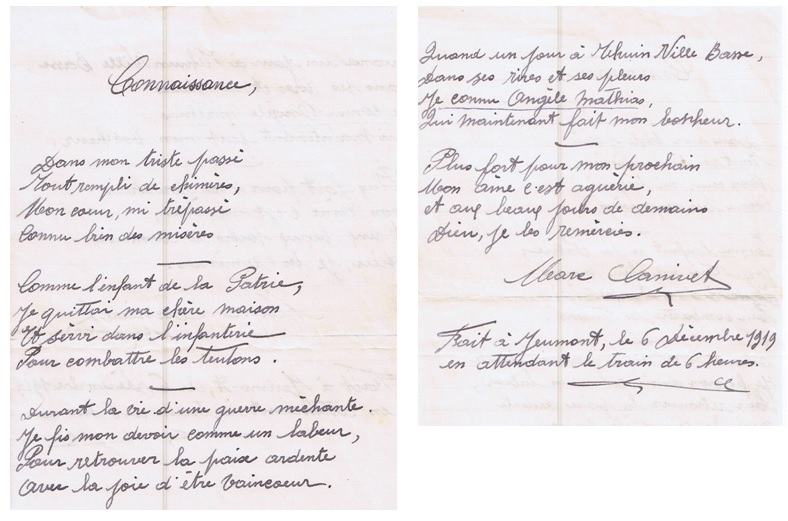 Connaissance,
Dans mon triste passé
Tout rempli de chimères,
Mon cœur, mi trépassé
Connu bien des misères
Comme l'enfant de la Patrie,
Je quittai ma chère maison
Et sèrvi dans l'infanterie
Pour combattre les teutons.
Durant la vie d'une guerre méchante.
Je fis mon devoir comme un labeur,
Pour retrouver la paix ardente
Avec la joie d'être vaincoeur.
Quand un jour à Thuin Ville Basse,
Dans ses rires et ses pleurs
Je connu Angèle Mathias,
Qui maintenant fait mon bonheur.
Plus fort pour mon prochain
Mon âme s'est aquèrie,
et aux beaux jours de demains
Dieu, je les remèrcies.
Marc Canivet
Fait à Jeumont, le 6 Décembre 1919
en attendant le train de 6 heures.